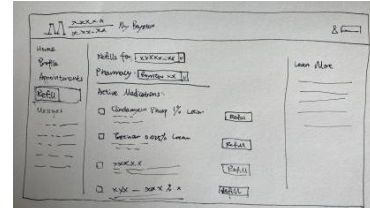 xxxxx.x
xx.xx-xx
Home
Profile
Appointments
Refill
Refills for xxxxxx-xx
Pharmacy:
Active Medications:
Clindamycin Phosp 1% Lotion
Refill
0.025%
Refill
xxxxxx
Refill
xxx — xxx x % x
Refill
Learn More